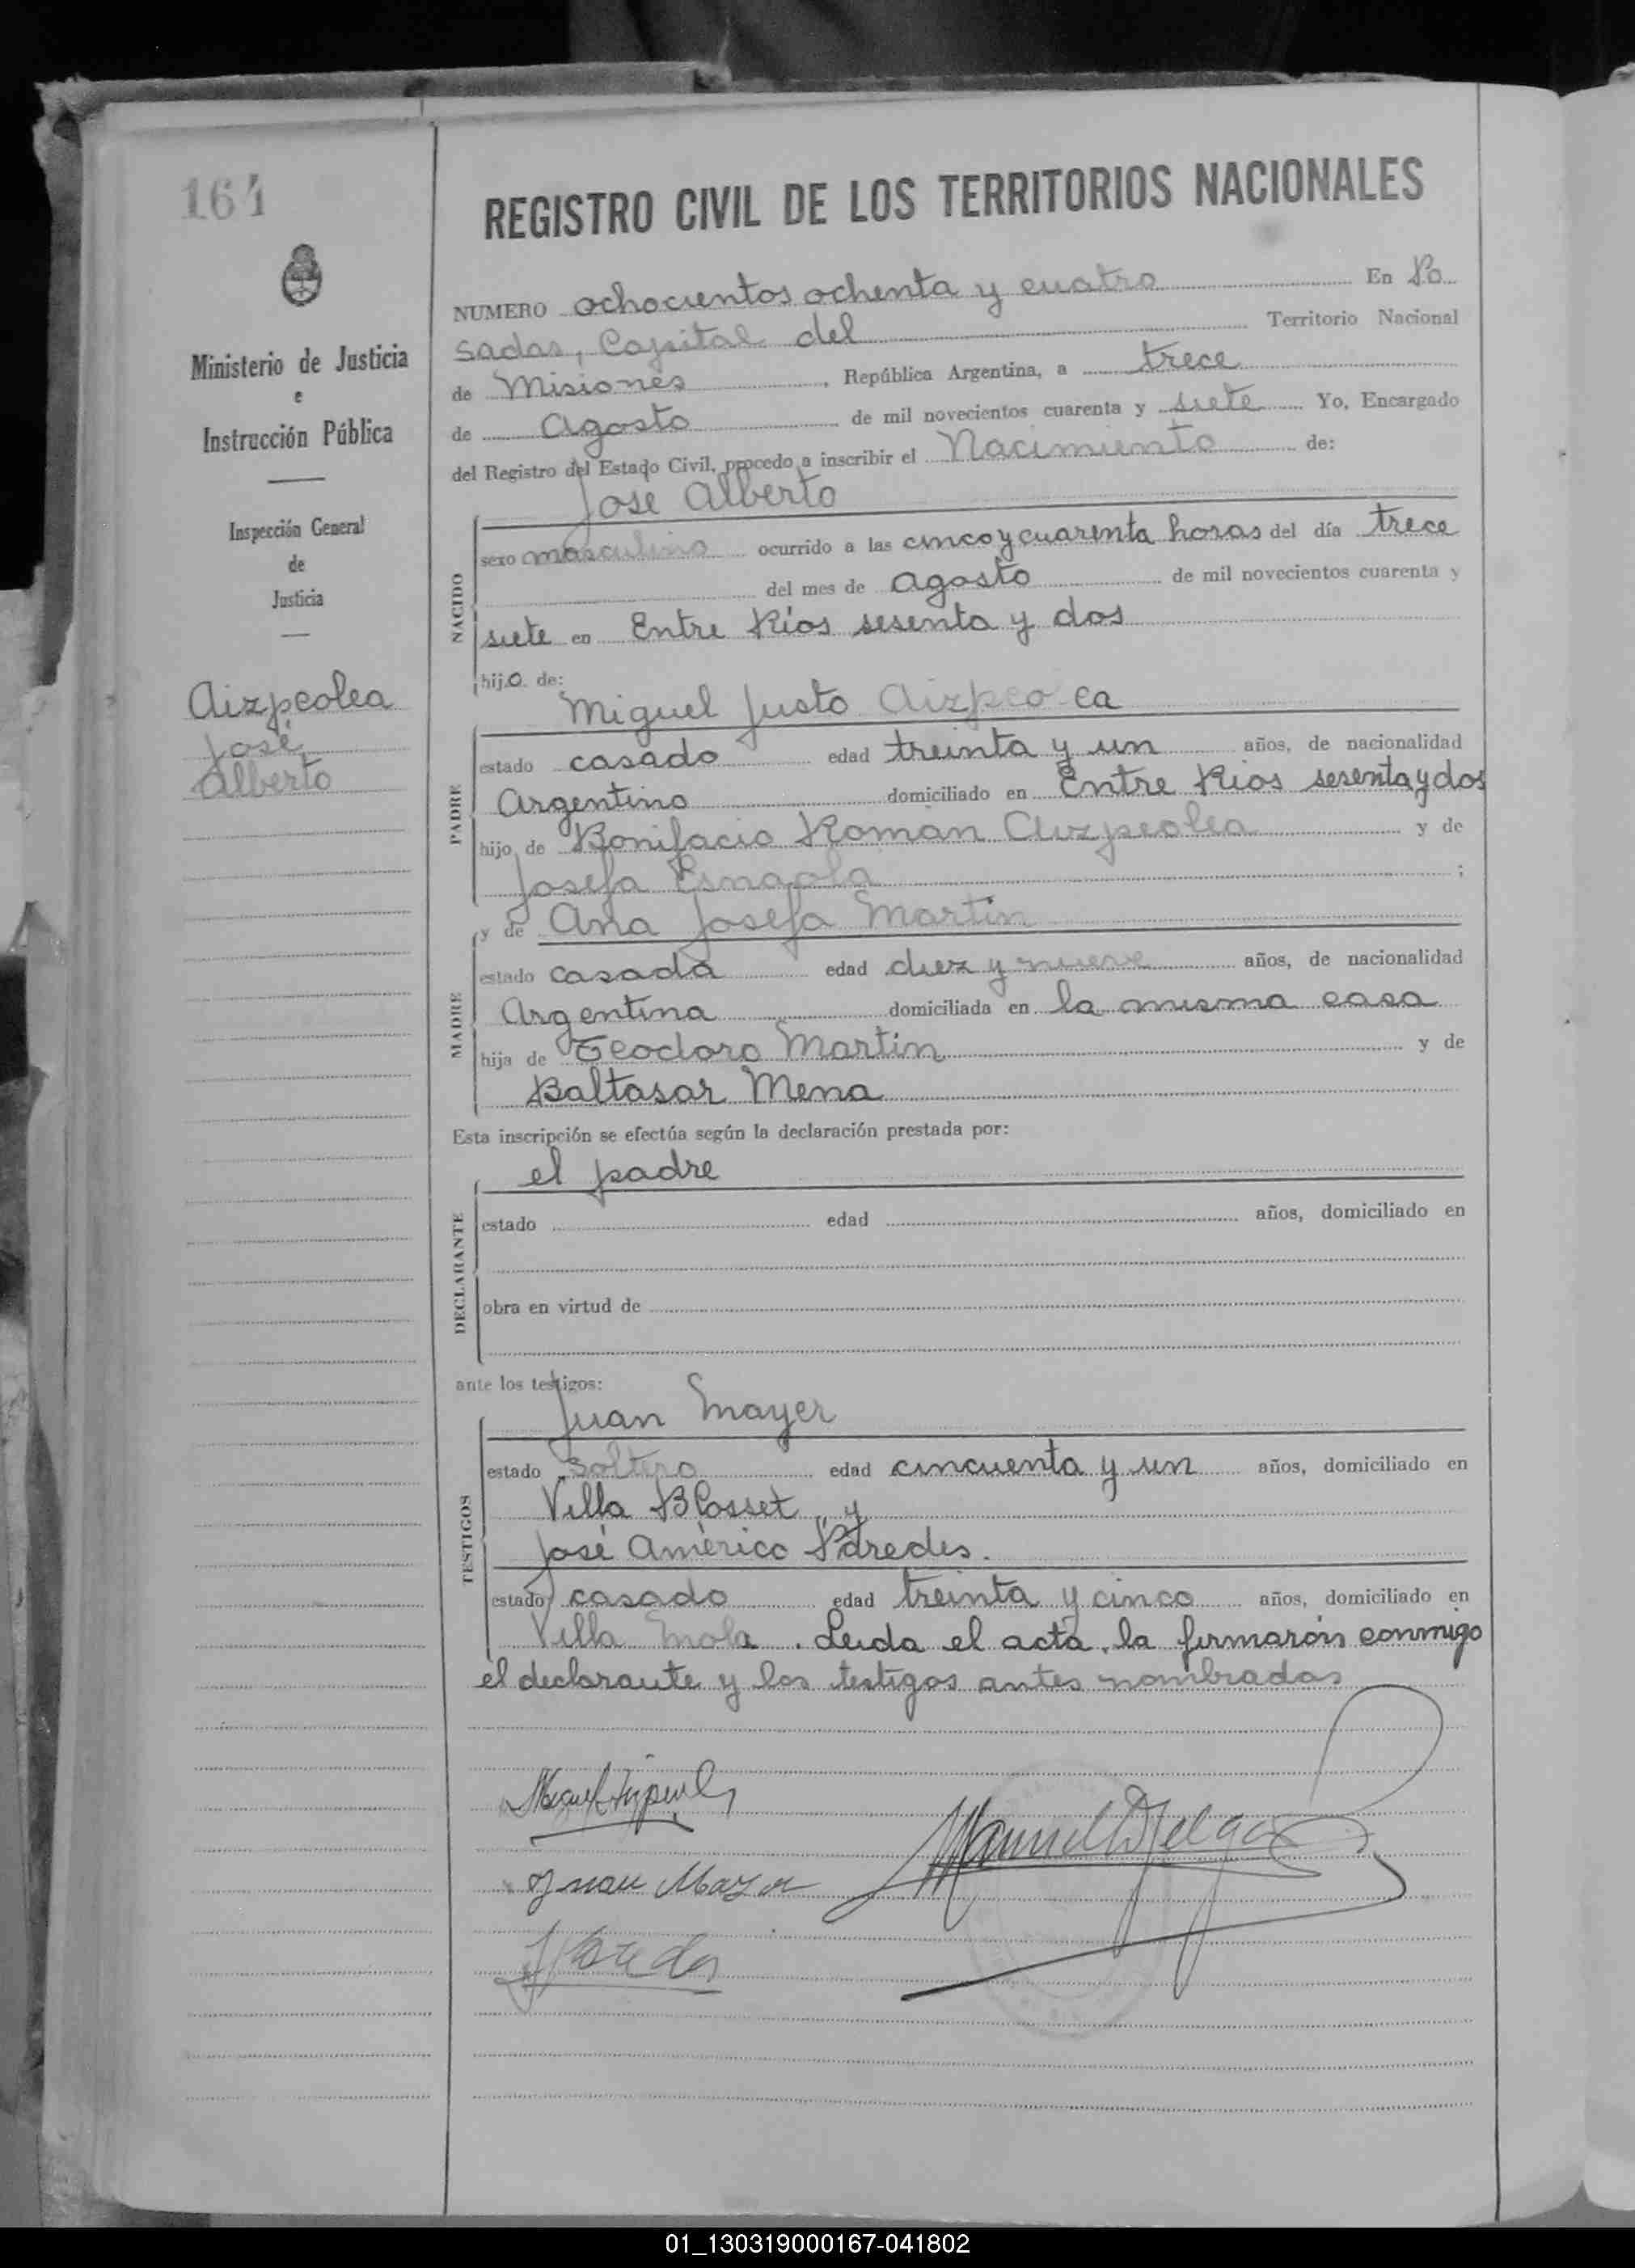 164
REGISTRO CIVIL DE LOS TERRITORIOS NACIONALES
Ministerio de Justicia
e
Instrucción Pública
Inspección General
de
Justicia
Aizpeolea
José
Alberto
NUMERO ochocientos ochenta y cuatro En Po
sadas, Capital del Territorio Nacional
de Misiones, República Argentina, a trece
de Agosto de mil novecientos cuarenta y siete Yo, Encargado
del Registro del Estado Civil, procedo a inscribir el Nacimiento de:
José Alberto
NACIDO
sexo masculino ocurrido a las cinco y cuarenta horas del día trece
del mes de agosto de mil novecientos cuarenta y
siete en Entre Ríos sesenta y dos
hijo de:
Miguel Justo Aizpeo ea
PADRE
estado casado edad treinta y un años, de nacionalidad
Argentino domiciliado en Entre Rios sesenta y dos
hijo de Bonifacio Roman Aizpeolea y de
Josefa Esnaola ;
y de Ana Josefa Martin
MADRE
estado casada edad diez y nueve años, de nacionalidad
Argentina domiciliada en la misma casa
hija de Teodoro Martin y de
Baltasar Mena
Esta inscripción se efectúa según la declaración prestada por:
el padre
DECLARANTE
estado edad años, domiciliado en
obra en virtud de
ante los testigos:
Juan Mayer
TESTIGOS
estado soltero edad cincuenta y un años, domiciliado en
Villa Blosset, y
José Américo Paredes.
estado casado edad treinta y cinco años, domiciliado en
Villa Mola. Leida el acta, la firmaron conmigo
el declarante y los testigos antes nombrados
Juan Mayer
01_130319000167-041802